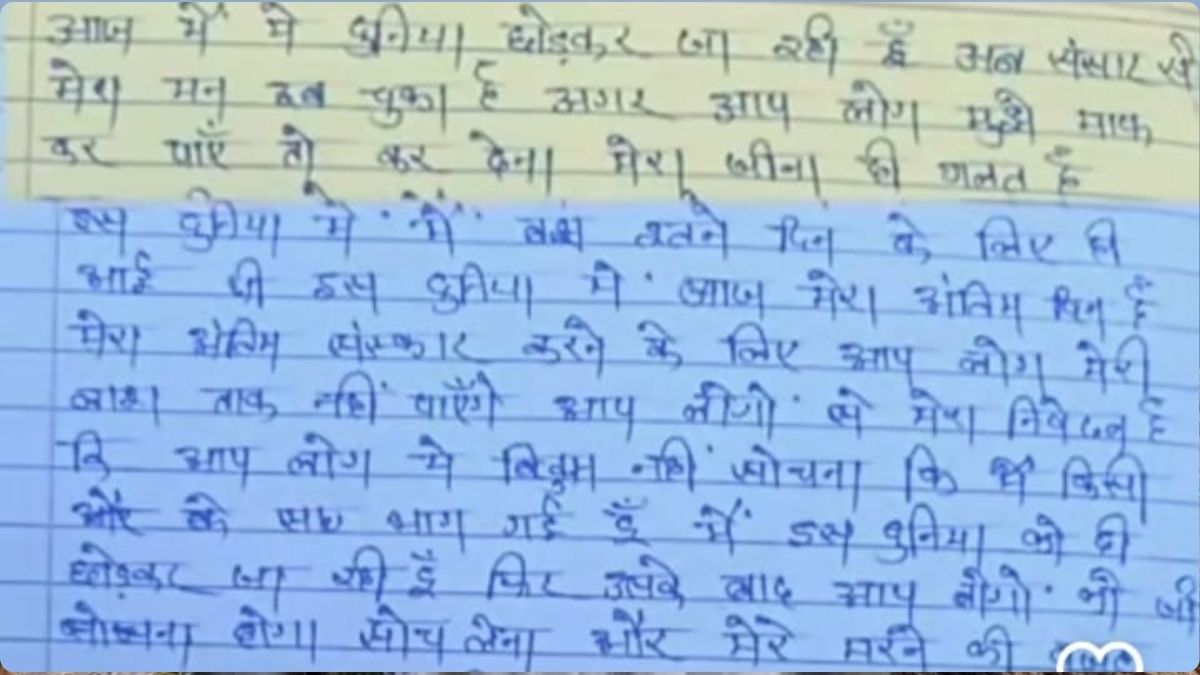 आज में मे दुनिया छोड़कर जा रही हूँ अब संसार से
मेरा मन उब चुका है अगर आप लोग मुझे माफ
कर पाएँ तो कर देना मेरा जीना ही गलत है
इस दुनिया मे में बस इतने दिन के लिए ही
आई थी इस दुनिया में आज मेरा अंतिम दिन है
मेरा अंतिम संस्कार करने के लिए आप लोग मेरी
लाश तक नहीं पाएँगे आप लोगो से मेरा निवेदन है
कि आप लोग ये नहीं सोचना कि मैं किसी
और के साथ भाग गई हूँ में इस दुनिया को ही
छोड़कर जा रही हूँ फिर उसके बाद आप लोगो को जो
सोचना होगा सोच लेना और मेरे मरने की